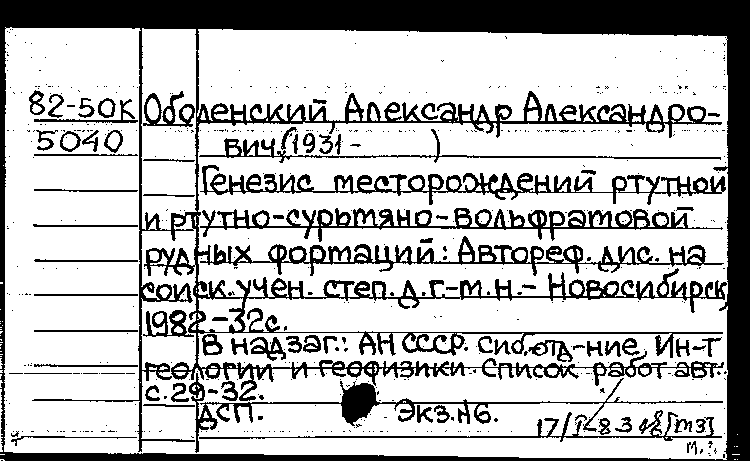 82-50К Оболенский, Александр Александро-
5040 вич (1931 - )
Генезис месторождений ртутной
и ртутно-сурьмяно-вольфрамовой
рудных формаций: Автореф. дис. на
соиск. учен. степ. д.г.-м.н. - Новосибирск,
1982.-32с.
В надзаг.: АН СССР. Сиб. отд-ние, Ин-т
геологии и геофизики. Список работ авт.
с.29-32.
ДСП. Экз.№6.
17/I-83 [тз]